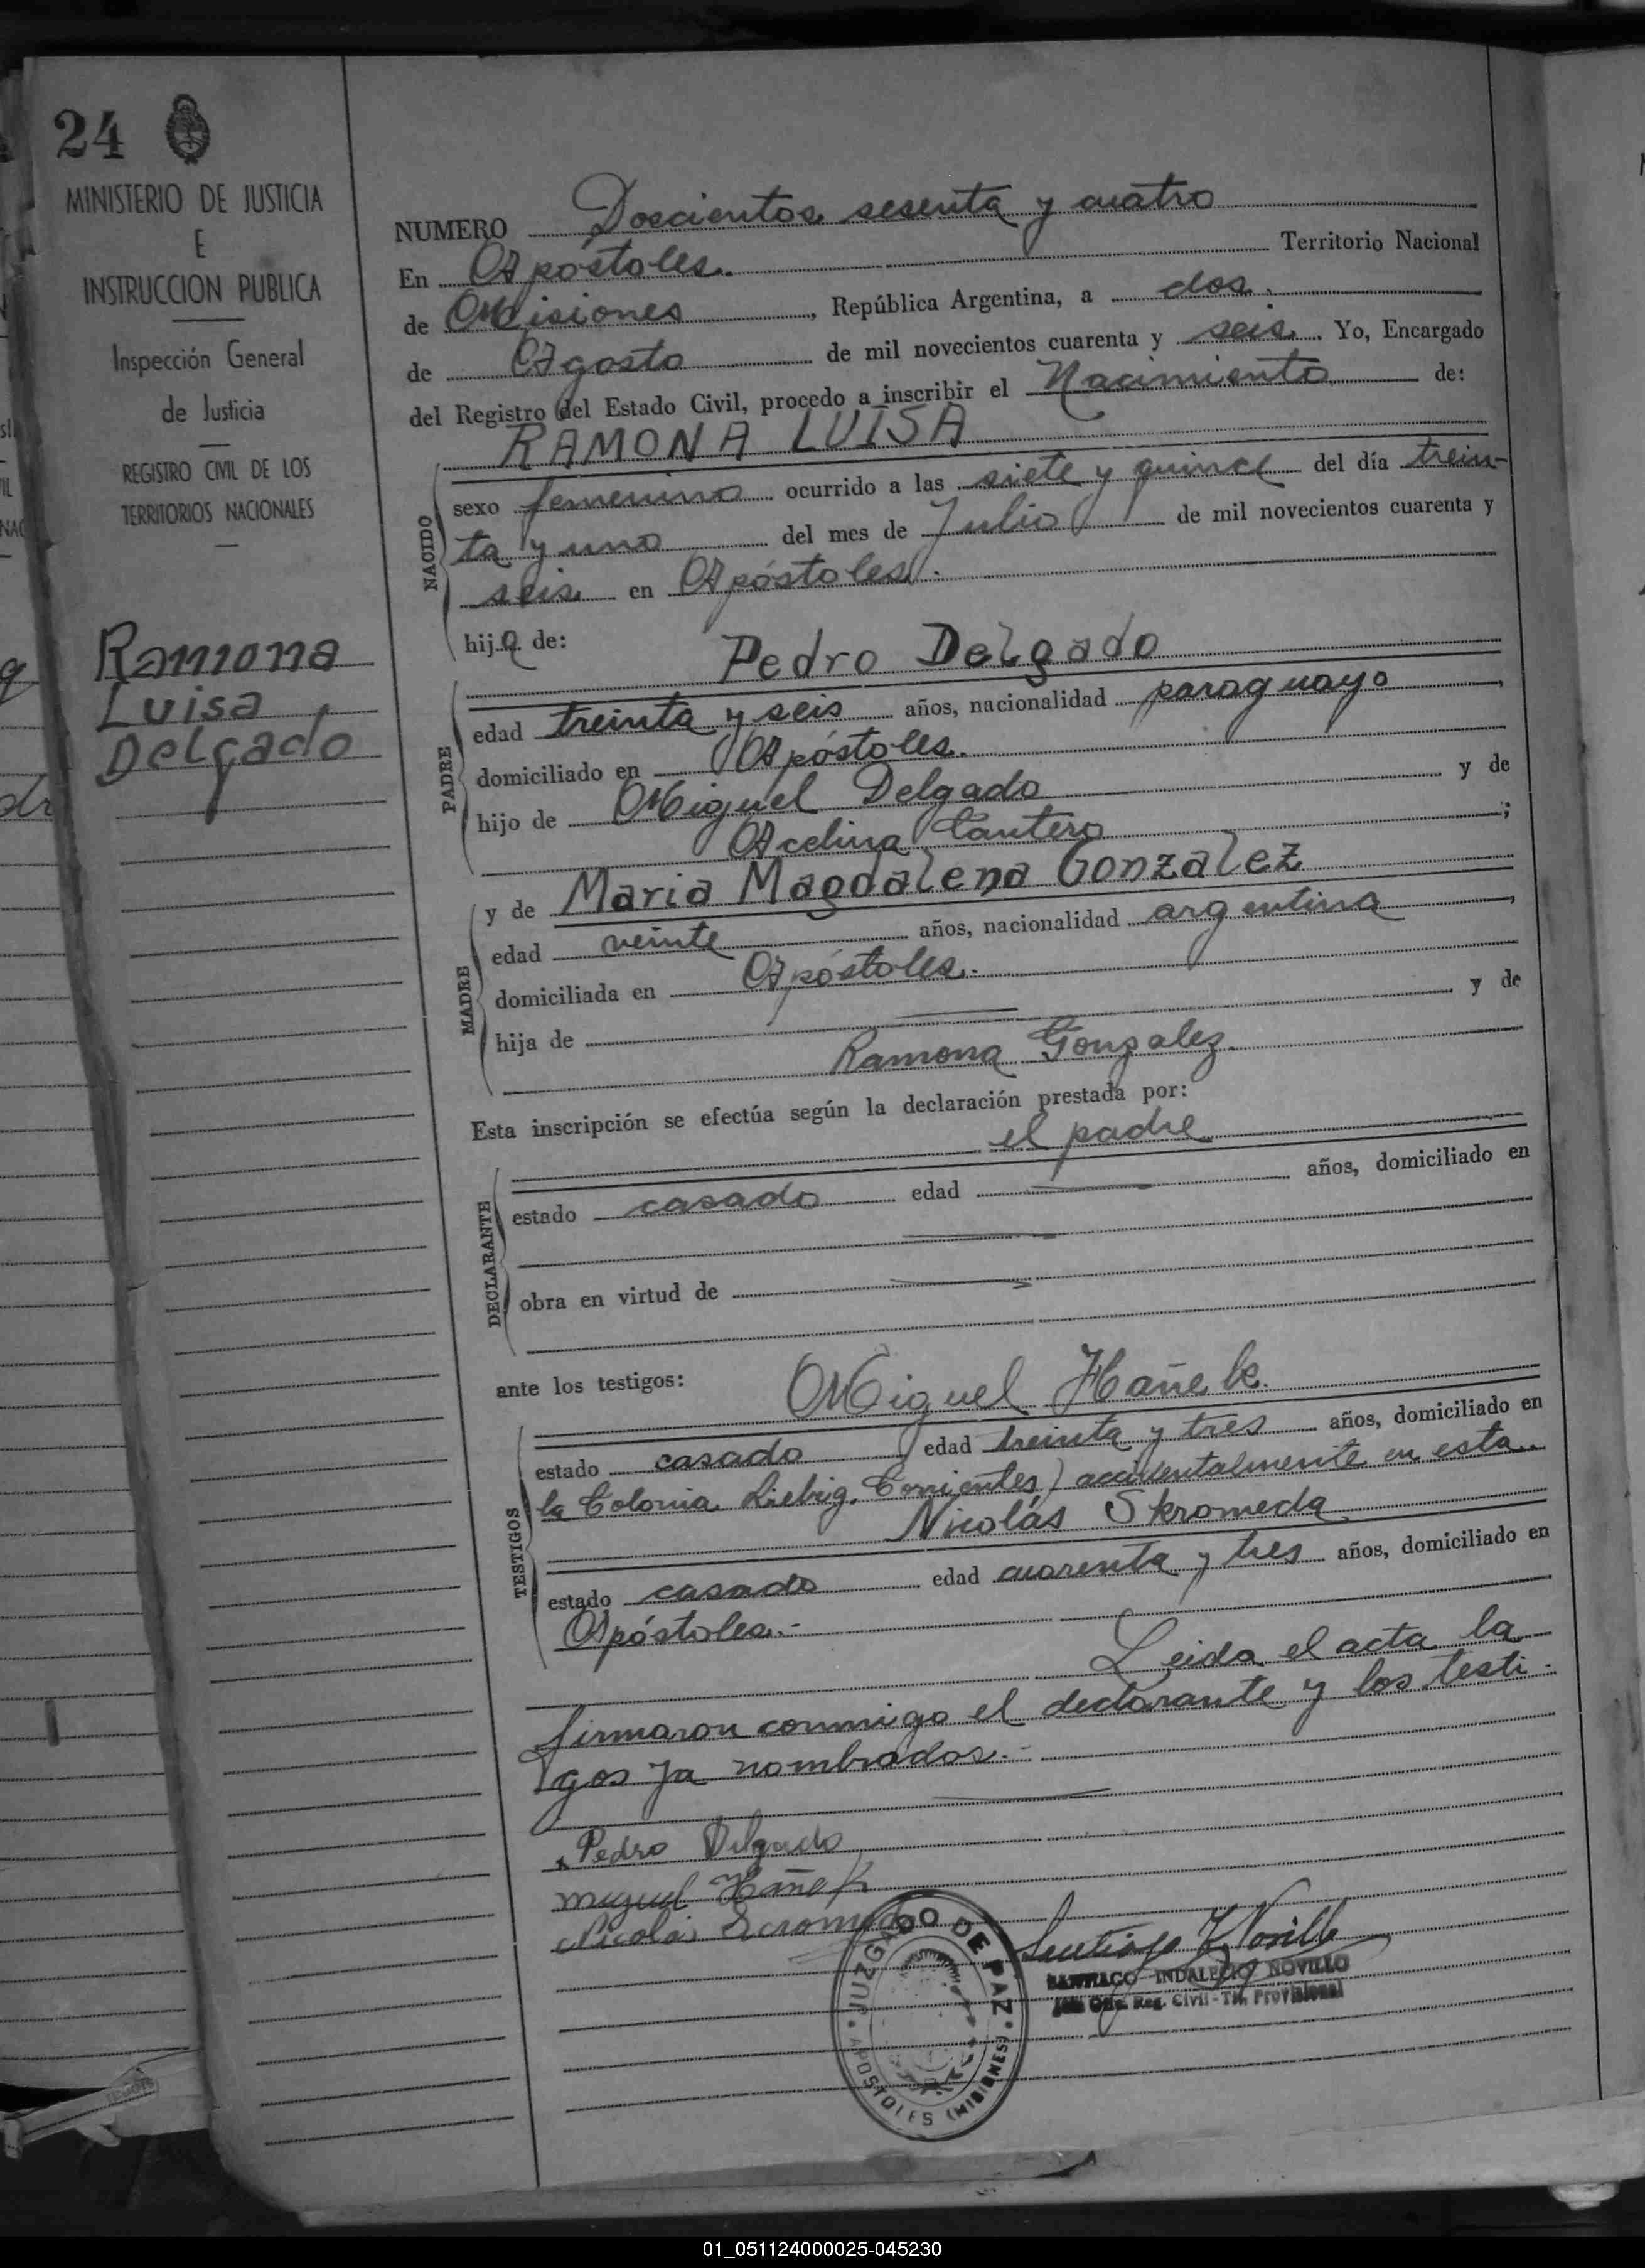 24
MINISTERIO DE JUSTICIA
E
INSTRUCCION PUBLICA
Inspección General
de Justicia
REGISTRO CIVIL DE LOS
TERRITORIOS NACIONALES
Ramona
Luisa
Delgado
NUMERO Doscientos sesenta y cuatro
En Apóstoles. Territorio Nacional
de Misiones, República Argentina, a dos.
de Agosto de mil novecientos cuarenta y seis. Yo, Encargado
del Registro del Estado Civil, procedo a inscribir el Nacimiento de:
RAMONA LUISA
NACIDO
sexo femenino ocurrido a las siete y quince del día trein-
ta y uno del mes de Julio de mil novecientos cuarenta y
seis en Apóstoles.
hija de: Pedro Delgado
PADRE
edad treinta y seis años, nacionalidad paraguayo,
domiciliado en Apóstoles.
hijo de Miguel Delgado y de
Acelina Cantero;
MADRE
y de Maria Magdalena Gonzalez
edad veinte años, nacionalidad argentina,
domiciliada en Apóstoles.
hija de — y de
Ramona Gonzalez.
Esta inscripción se efectúa según la declaración prestada por:
el padre
DECLARANTE
estado casado edad — años, domiciliado en
—
obra en virtud de —
ante los testigos: Miguel Hañek.
TESTIGOS
estado casado edad treinta y tres años, domiciliado en
la Colonia Liebig. Corrientes) accidentalmente en esta.
Nicolás Skromeda
estado casado edad cuarenta y tres años, domiciliado en
Apóstoles.-
Leida el acta la
firmaron conmigo el declarante y los testi-
gos ya nombrados.-
Pedro Delgado
miguel Hañek
Nicolas
JUZGADO DE PAZ
APOSTOLES (MISIONES)
SANTIAGO INDALECIO NOVILLO
Reg. Civil - Provisional
01_051124000025-045230